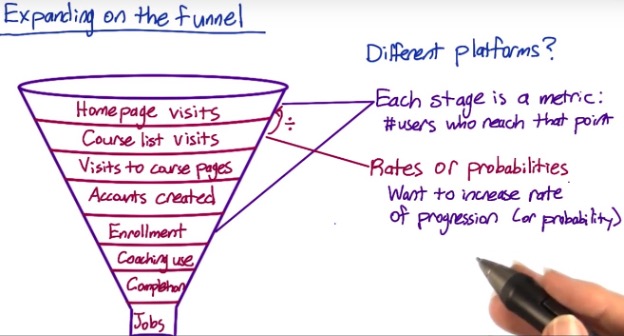 Expanding on the funnel
Different platforms?
Homepage visits
Course list visits
Visits to course pages
Accounts created
Enrollment
Coaching use
Completion
Jobs
÷
Each stage is a metric:
#users who reach that point
Rates or probabilities
Want to increase rate
of progression (or probability)